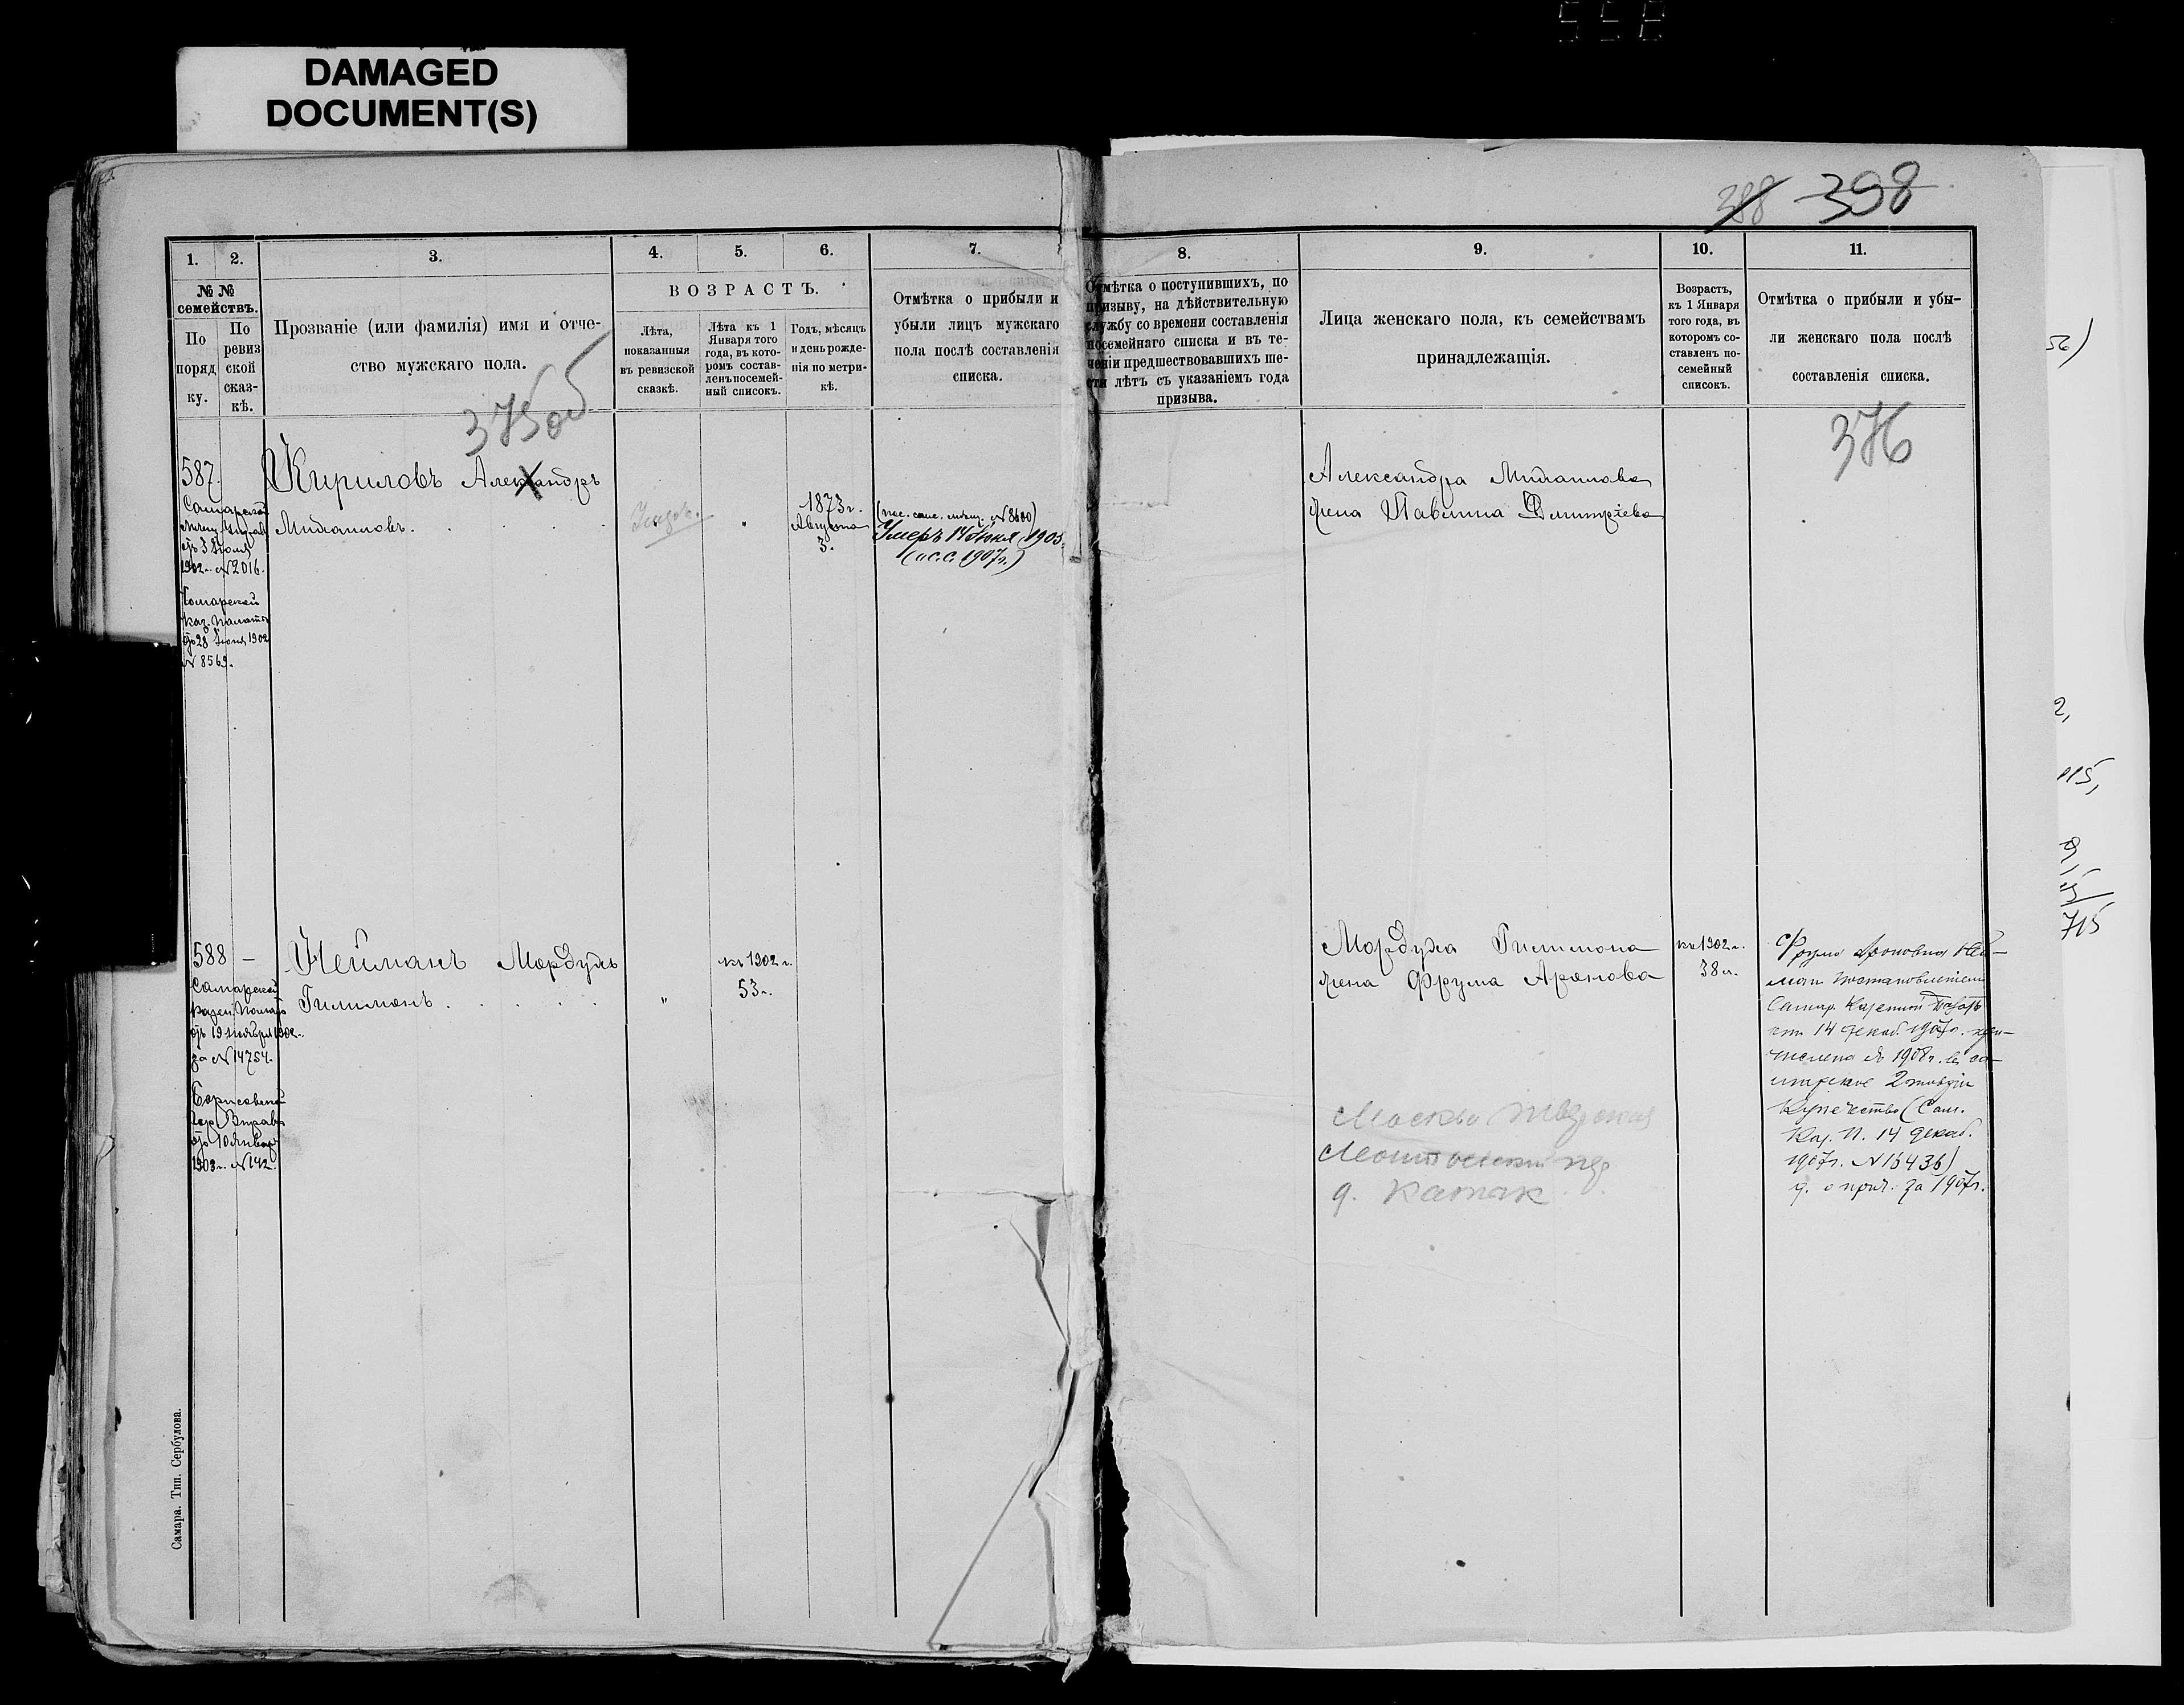 DAMAGED
DOCUMENT(S)
388 398
1. 2. 3. 4. 5. 6. 7.
№ №
семействъ.
По
поряд
ку.
По
ревиз
ской
сказ-
кѣ.
Прозваніе (или фамилія) имя и отче-
ство мужскаго пола.
ВОЗРАСТЪ.
Лѣта,
показанныя
въ ревизской
сказкѣ.
Лѣта къ 1
Января того
года, въ кото-
ромъ состав-
ленъ посемей-
ный списокъ.
Годъ, мѣсяцъ
и день рожде-
нія по метри-
кѣ.
Отмѣтка о прибыли и
убыли лицъ мужскаго
пола послѣ составленія
списка.
8. 9. 10. 11.
Отмѣтка о поступившихъ, по
призыву, на дѣйствительную
службу со времени составленія
посемейнаго списка и въ те-
ченіи предшествовавшихъ ше-
сти лѣтъ съ указаніемъ года
призыва.
Лица женскаго пола, къ семействамъ
принадлежащія.
Возрастъ,
къ 1 Января
того года, въ
которомъ со-
ставленъ по-
семейный
списокъ.
Отмѣтка о прибыли и убы-
ли женскаго пола послѣ
составленія списка.
375об
376
587.
Самарской
Мѣщ. Управ.
отъ 3 Іюня
1902 г. № 2016.
Самарской
Каз. Палаты
отъ 28 Іюня 1902
№ 8569.
Кириловъ Александръ
Михаиловъ.
1873 г.
Августа
3.
№ 8680)
Умеръ 14 Іюня 1905
1907 г.)
Александра Михаилова
жена Павлина Дмитріева
588 —
Самарской
Казен. Палаты
отъ 19 Ноября 1902 г.
за № 14754.
отъ 10 Января
1903 г. № 142.
Нейманъ Мордухъ
Гилимонъ.
"
къ 1902 г.
53 г.
Мордуха Гилимона
жена Фрума Аронова
къ 1902 г.
38 л.
Фрума Ароновна Ней-
ман постановленіем
Самар. Казенной Палаты
от 14 декаб. 1907 г. при-
числена съ 1908 г. въ са-
марское 2 гильдіи
Купечество (Сам.
Каз. П. 14 декаб.
1907 г. № 16436)
д. о прич. за 1907 г.
Москва Тверская
д.
56)
2,
115,
715
Самара. Тип. Сербулова.